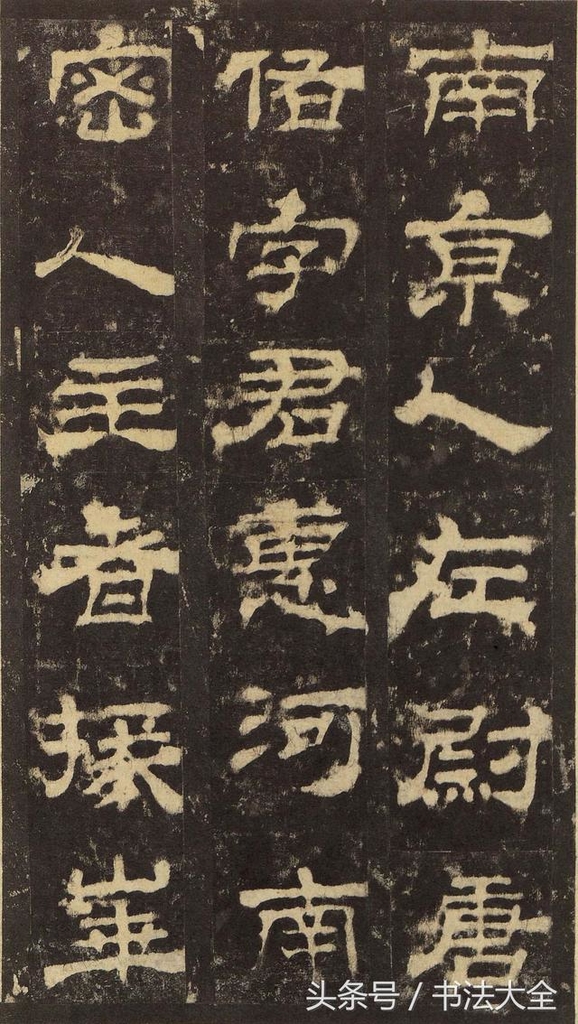 南京人左尉唐
佑字君惠河南
密人主者掾華
头条号 / 书法大全